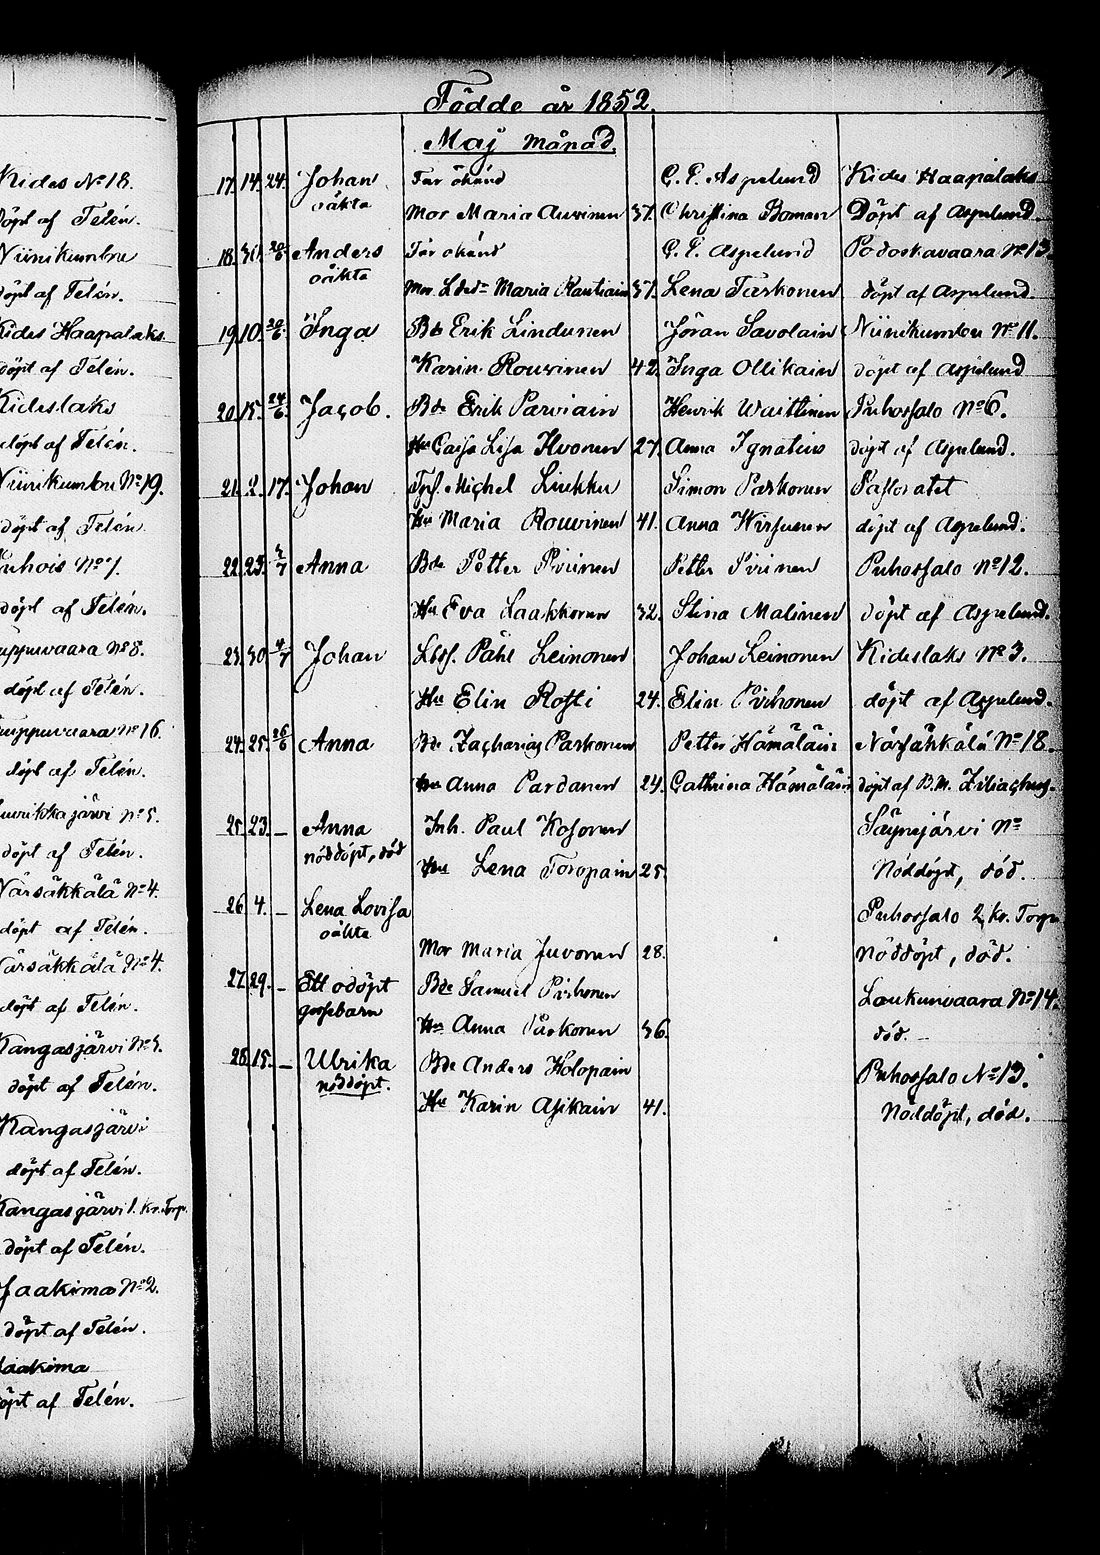 Kides No 18.
Döpt af Telén.
Niinikumbu
döpt af Telén.
Kides Haapalaks
döpt af Telén.
Kideslaks
döpt af Telén.
Niinikumbu No 19.
döpt af Telén.
Puhois No 7.
döpt af Telén.
No 8.
döpt af Telén.
No 16.
döpt af Telén.
järvi No 5.
döpt af Telén.
Värsäkkälä No 4.
döpt af Telén.
Värsäkkälä No 4.
döpt af Telén.
Kangasjärvi No
döpt af Telén.
Kangasjärvi
döpt af Telén.
Kangasjärvi 1. Kr. Torp.
döpt af Telén.
Jaakima No 2.
döpt af Telén.
Jaakima
döpt af Telén.
Födde år 1852.
Maj månad.
17. 14. 24. Johan Far okänd Aspelund Kides Haapalaks
oäkta Mor Maria Auvinen 37. Christina Boman Döpt af Aspelund.
18. 30. 20/6 Anders Far okänd Aspelund Podoskavaara No 13
oäkta Mor Maria Rautiain 37. Lena Tarkonen döpt af Aspelund.
19. 10. 20/6 Inga Bd Erik Lindunen Jöran Savolain Niinikumbu No 11.
Karin Rouvinen 42. Inga Ollikain döpt af Aspelund
20. 15. 24/6 Jacob. Bde Erik Parviain Henrik Waittinen Puhossalo No 6.
Hu Caisa Lisa Ikonen 27. Anna Ignatius döpt af Aspelund.
21. 2. 17. Johan Michel Liukku Simon Parkonen Pastoratet
Hu Maria Rouvinen 41. Anna Hirvonen döpt af Aspelund.
22. 23. 4/7 Anna Bde Petter Piirinen Petter Piirinen Puhossalo No 12.
Hu Eva Laakkonen 32. Stina Malinen döpt af Aspelund.
23. 30. 4/7 Johan Lbsf. Påhl Leinonen Johan Leinonen Kideslaks No 3.
Hu Elin Rosti 24. Elin Pirhonen döpt af Aspelund.
24. 25. 26/6 Anna Bde Zacharias Parkonen Petter Hämäläin Närsäkkälä No 18.
Hu Anna Pardanen 24. Cathrina Hämäläin döpt af B.M. Ziliachus.
25. 23. – Anna Inh. Paul Kosonen Säynejärvi No
nöddöpt, död Hu Lena Toropain 25. Nöddöpt, död.
26. 4. – Lena Lovisa Puhossalo 2 kr. Torp
oäkta Mor Maria Juvonen 28. nöddöpt, död.
27. 29. – Ett odöpt Bde Samuel Pirhonen Loukunvaara No 14.
gossbarn Hu Anna Turkonen 36. död.
28. 15. – Ulrika Bde Anders Holopain Puhossalo No 13.
nöddöpt. Hu Karin Asikain 41. Nöddöpt, död.